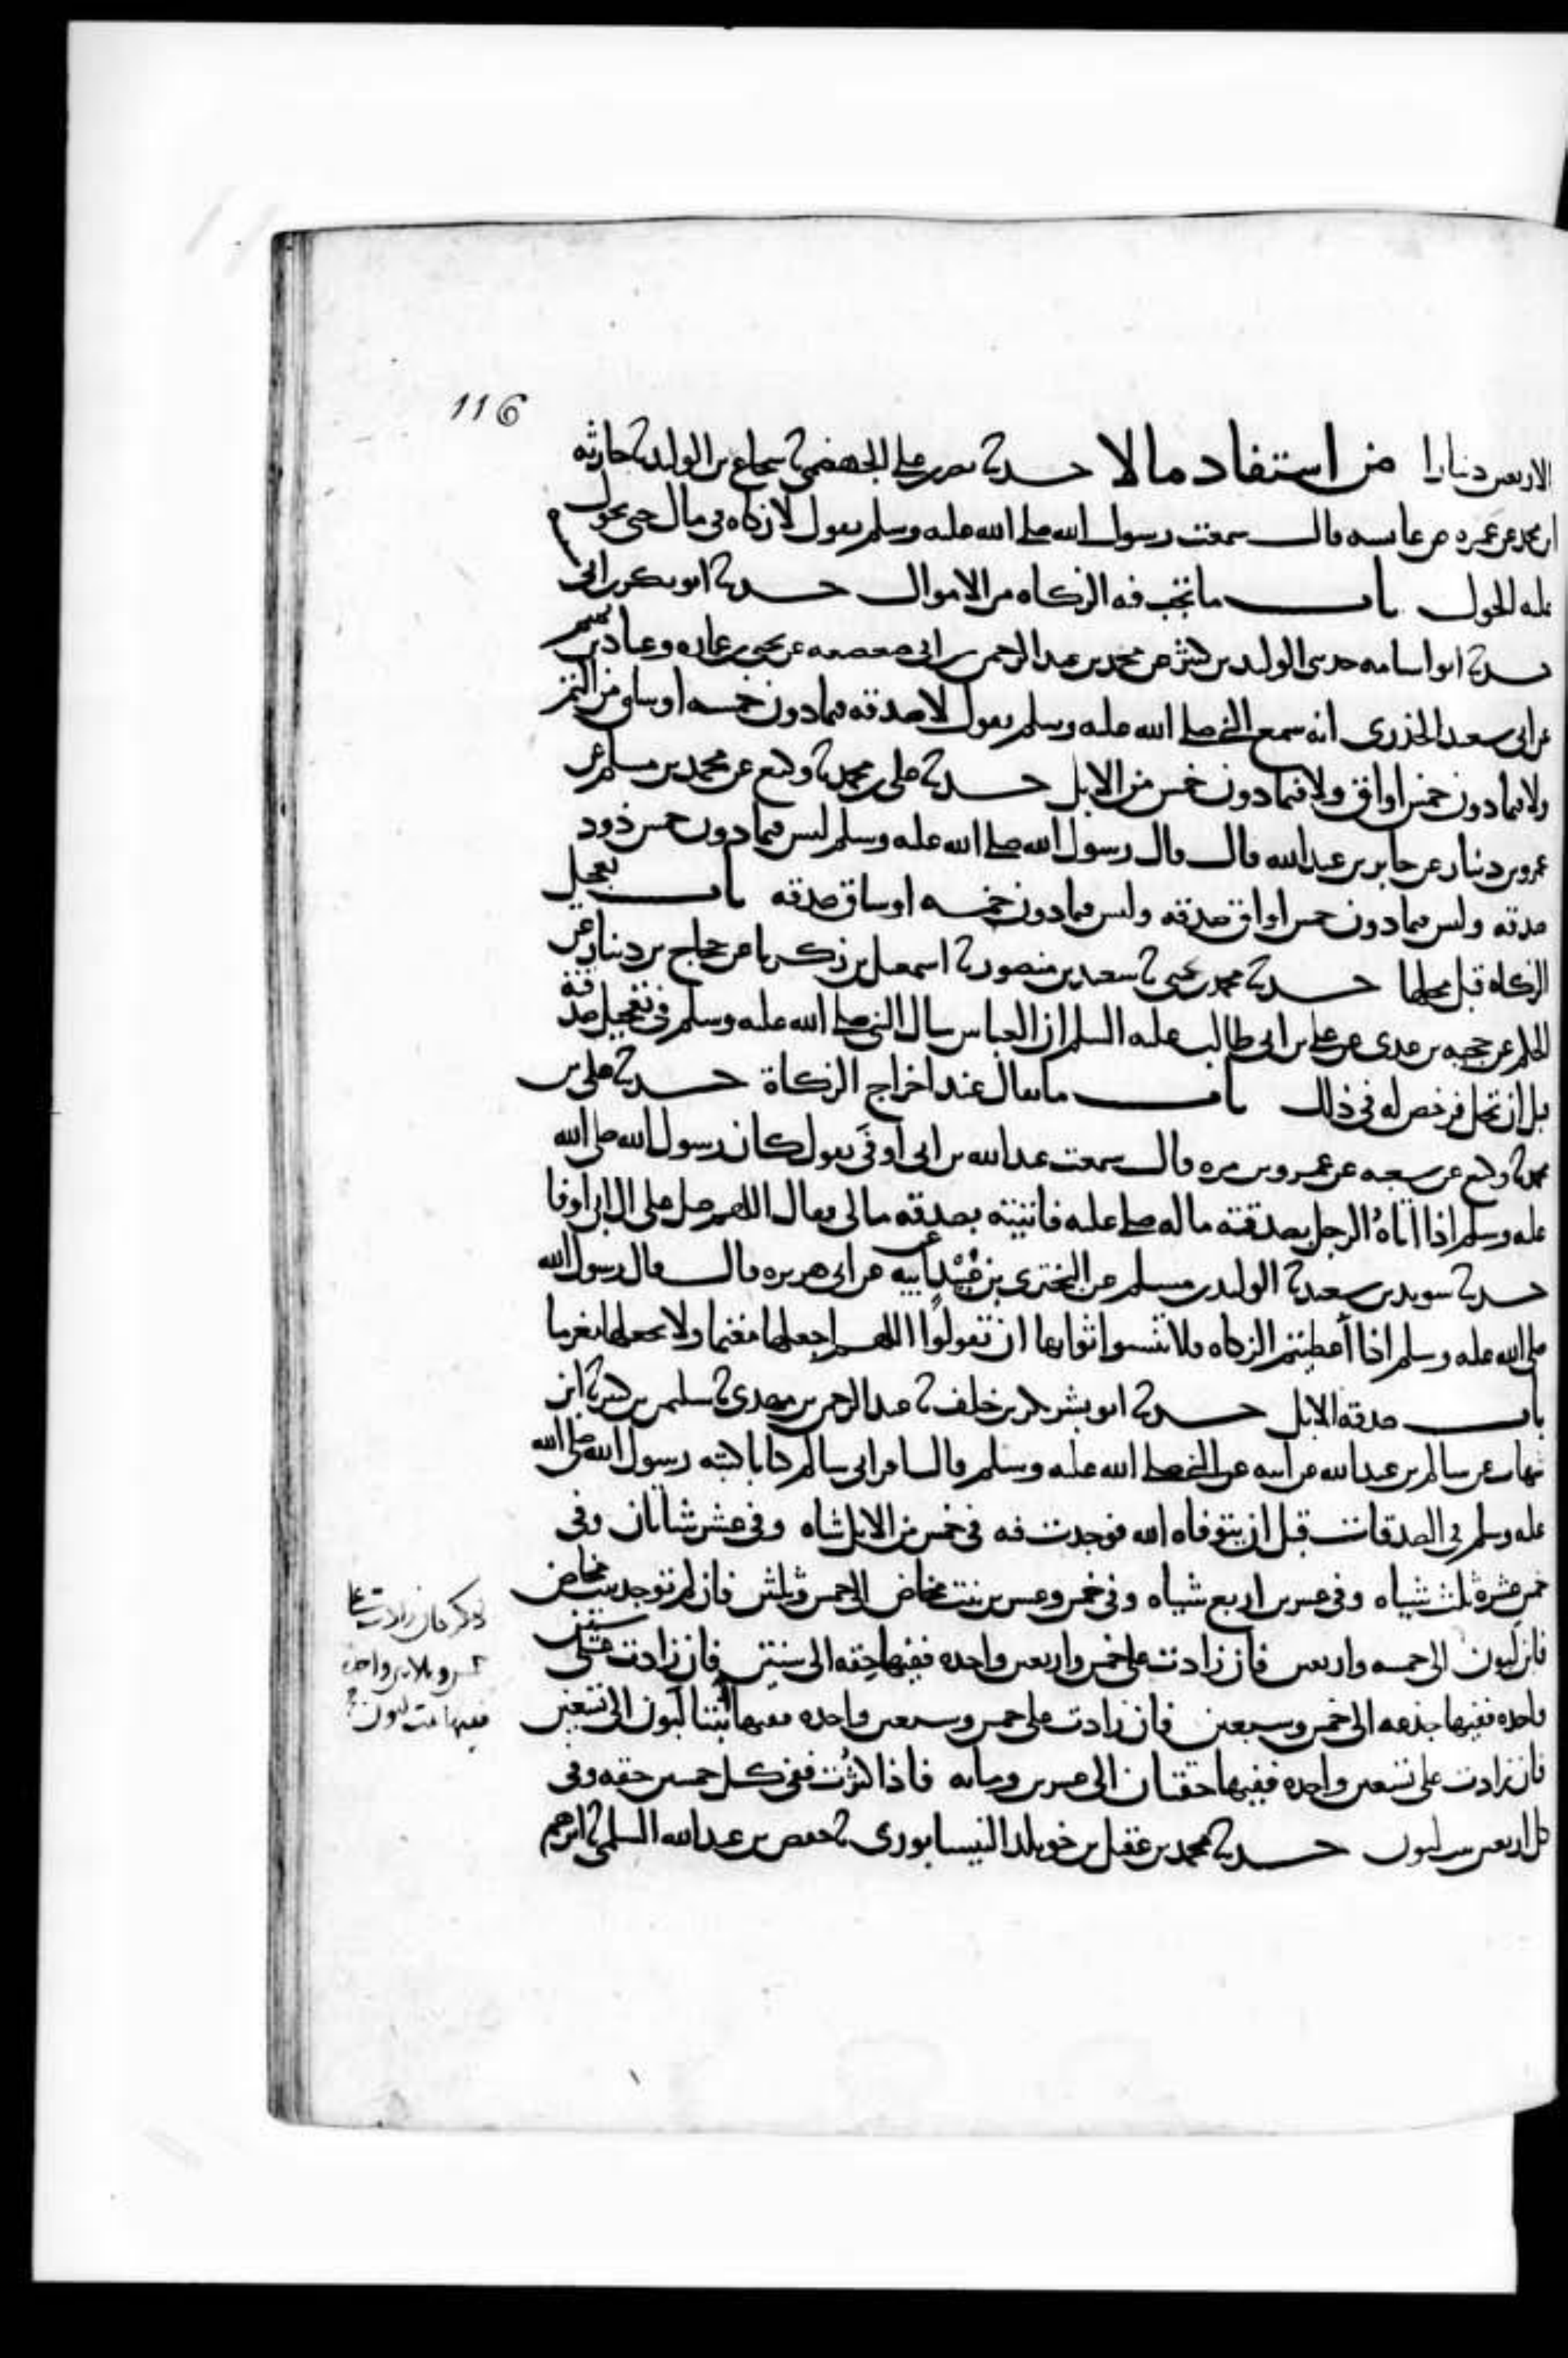 116
الاربعين دينارا من استفاد مالا حدثنا نصر بن علي الجهضمي نا شجاع بن الوليد نا حارثه
ابن محمد عن عمره عن عايشه قالت سمعت رسول الله صلى الله عليه وسلم يقول لا زكاه في مال حتى يحول
عليه الحول باب ما تجب فيه الزكاه من الاموال حدثنا ابو بكر بن ابي
نا ابو اسامه حدثني الوليد بن كثير عن محمد بن عبد الرحمن بن ابي صعصعه عن يحيى بن عماره وعباد بن تميم
عن ابي سعيد الخدري انه سمع النبي صلى الله عليه وسلم يقول لا صدقه فيما دون خمسه اوساق من التمر
ولا فيما دون خمس اواق ولا فيما دون خمس من الابل حدثنا علي بن محمد نا وكيع عن محمد بن مسلم عن
عمرو بن دينار عن جابر بن عبد الله قال قال رسول الله صلى الله عليه وسلم ليس فيما دون خمس ذود
صدقه وليس فيما دون خمس اواق صدقه وليس فيما دون خمسه اوساق صدقه باب تعجيل
الزكاه قبل محلها حدثنا محمد بن يحيى نا سعيد بن منصور نا اسمعيل بن زكريا عن حجاج بن دينار عن
الحكم عن حجيه بن عدي عن علي بن ابي طالب عليه السلم ان العباس سال النبي صلى الله عليه وسلم في تعجيل صدقته
قبل ان تحل فرخص له في ذلك باب ما يقال عند اخراج الزكاة حدثنا علي بن
محمد نا وكيع عن شعبه عن عمرو بن مره قال سمعت عبد الله بن ابي اوفى يقول كان رسول الله صلى الله
عليه وسلم اذا اتاه الرجل بصدقته ماله صلى عليه فاتيته بصدقه مالي فقال اللهم صل على ال ابي اوفا
حدثنا سويد بن سعيد نا الوليد بن مسلم عن البختري بن عبيد عن ابيه عن ابي هريره قال قال رسول الله
صلى الله عليه وسلم اذا اعطيتم الزكاه فلا تنسوا ثوابها ان تقولوا اللهم اجعلها مغنما ولا تجعلها مغرما
باب صدقه الابل حدثنا ابو بشر بكر بن خلف نا عبد الرحمن بن مهدي نا سليمن بن كثير نا ابن
شهاب عن سالم بن عبد الله عن ابيه عن النبي صلى الله عليه وسلم قال اقراني سالم كتابا كتبه رسول الله صلى الله
عليه وسلم في الصدقات قبل ان يتوفاه الله فوجدت فيه في خمس من الابل شاه وفي عشر شاتان وفي
خمس عشره ثلث شياه وفي عشرين اربع شياه وفي خمس وعشرين بنت مخاض الى خمس وثلثين فان لم توجد بنت مخاض
فابن لبون الى خمسه واربعين فان زادت على خمس واربعين واحده ففيها حقه الى ستين فان زادت على ستين
واحده ففيها جذعه الى خمس وسبعين فان زادت على خمس وسبعين واحده ففيها ابنتا لبون الى تسعين
فان زادت على تسعين واحده ففيها حقتان الى عشرين ومايه فاذا كثرت ففي كل خمسين حقه وفي
كل اربعين بنت لبون حدثنا محمد بن عقيل بن خويلد النيسابوري نا حفص بن عبد الله السلمي نا ابرهيم
ذكر فان زادت على
خمس وثلاثين واحده
ففيها بنت لبون